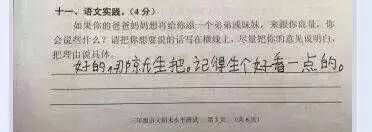 十一、语文实践。（4分）
如果你的爸爸妈妈想再给你添一个弟弟或妹妹，来跟你商量，你
会说些什么？请把你想要说的话写在横线上，尽量把你的意见说明白，
把理由说具体。
好的，那你就生把。记得生个好看一点的。
三年级语文期末水平测试 第5页 （共6页）